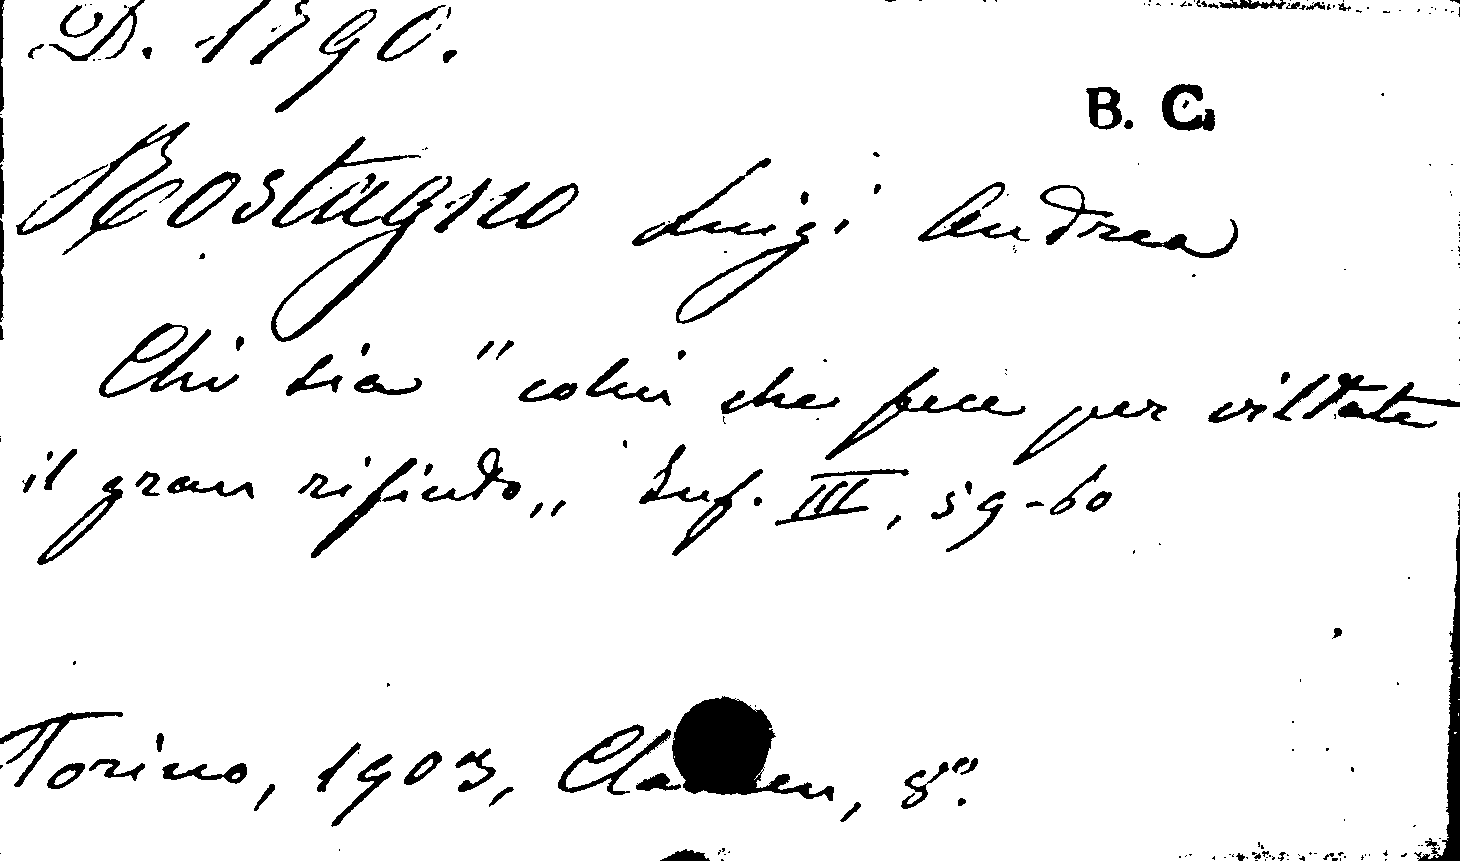 D. 1390.
B. C.
Rostagno Luigi Andrea
Chi sia "colui che fece per viltate
il gran rifiuto„ Inf. III, 59-60
Torino, 1903, Clausen, 8°.